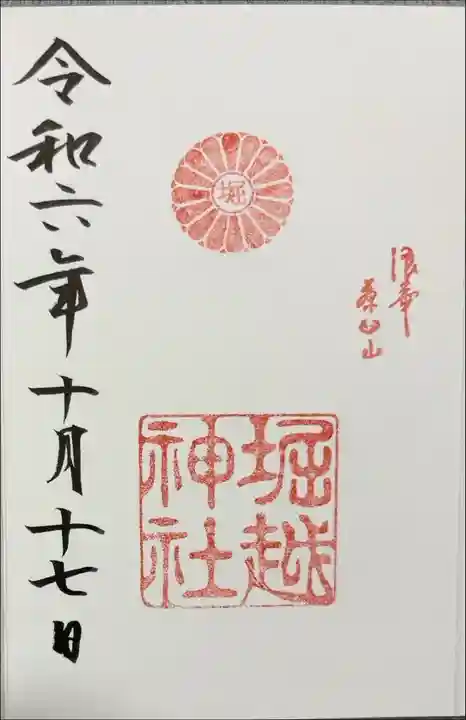 浪華
茶臼山
堀
堀越
神社
令和六年十月十七日